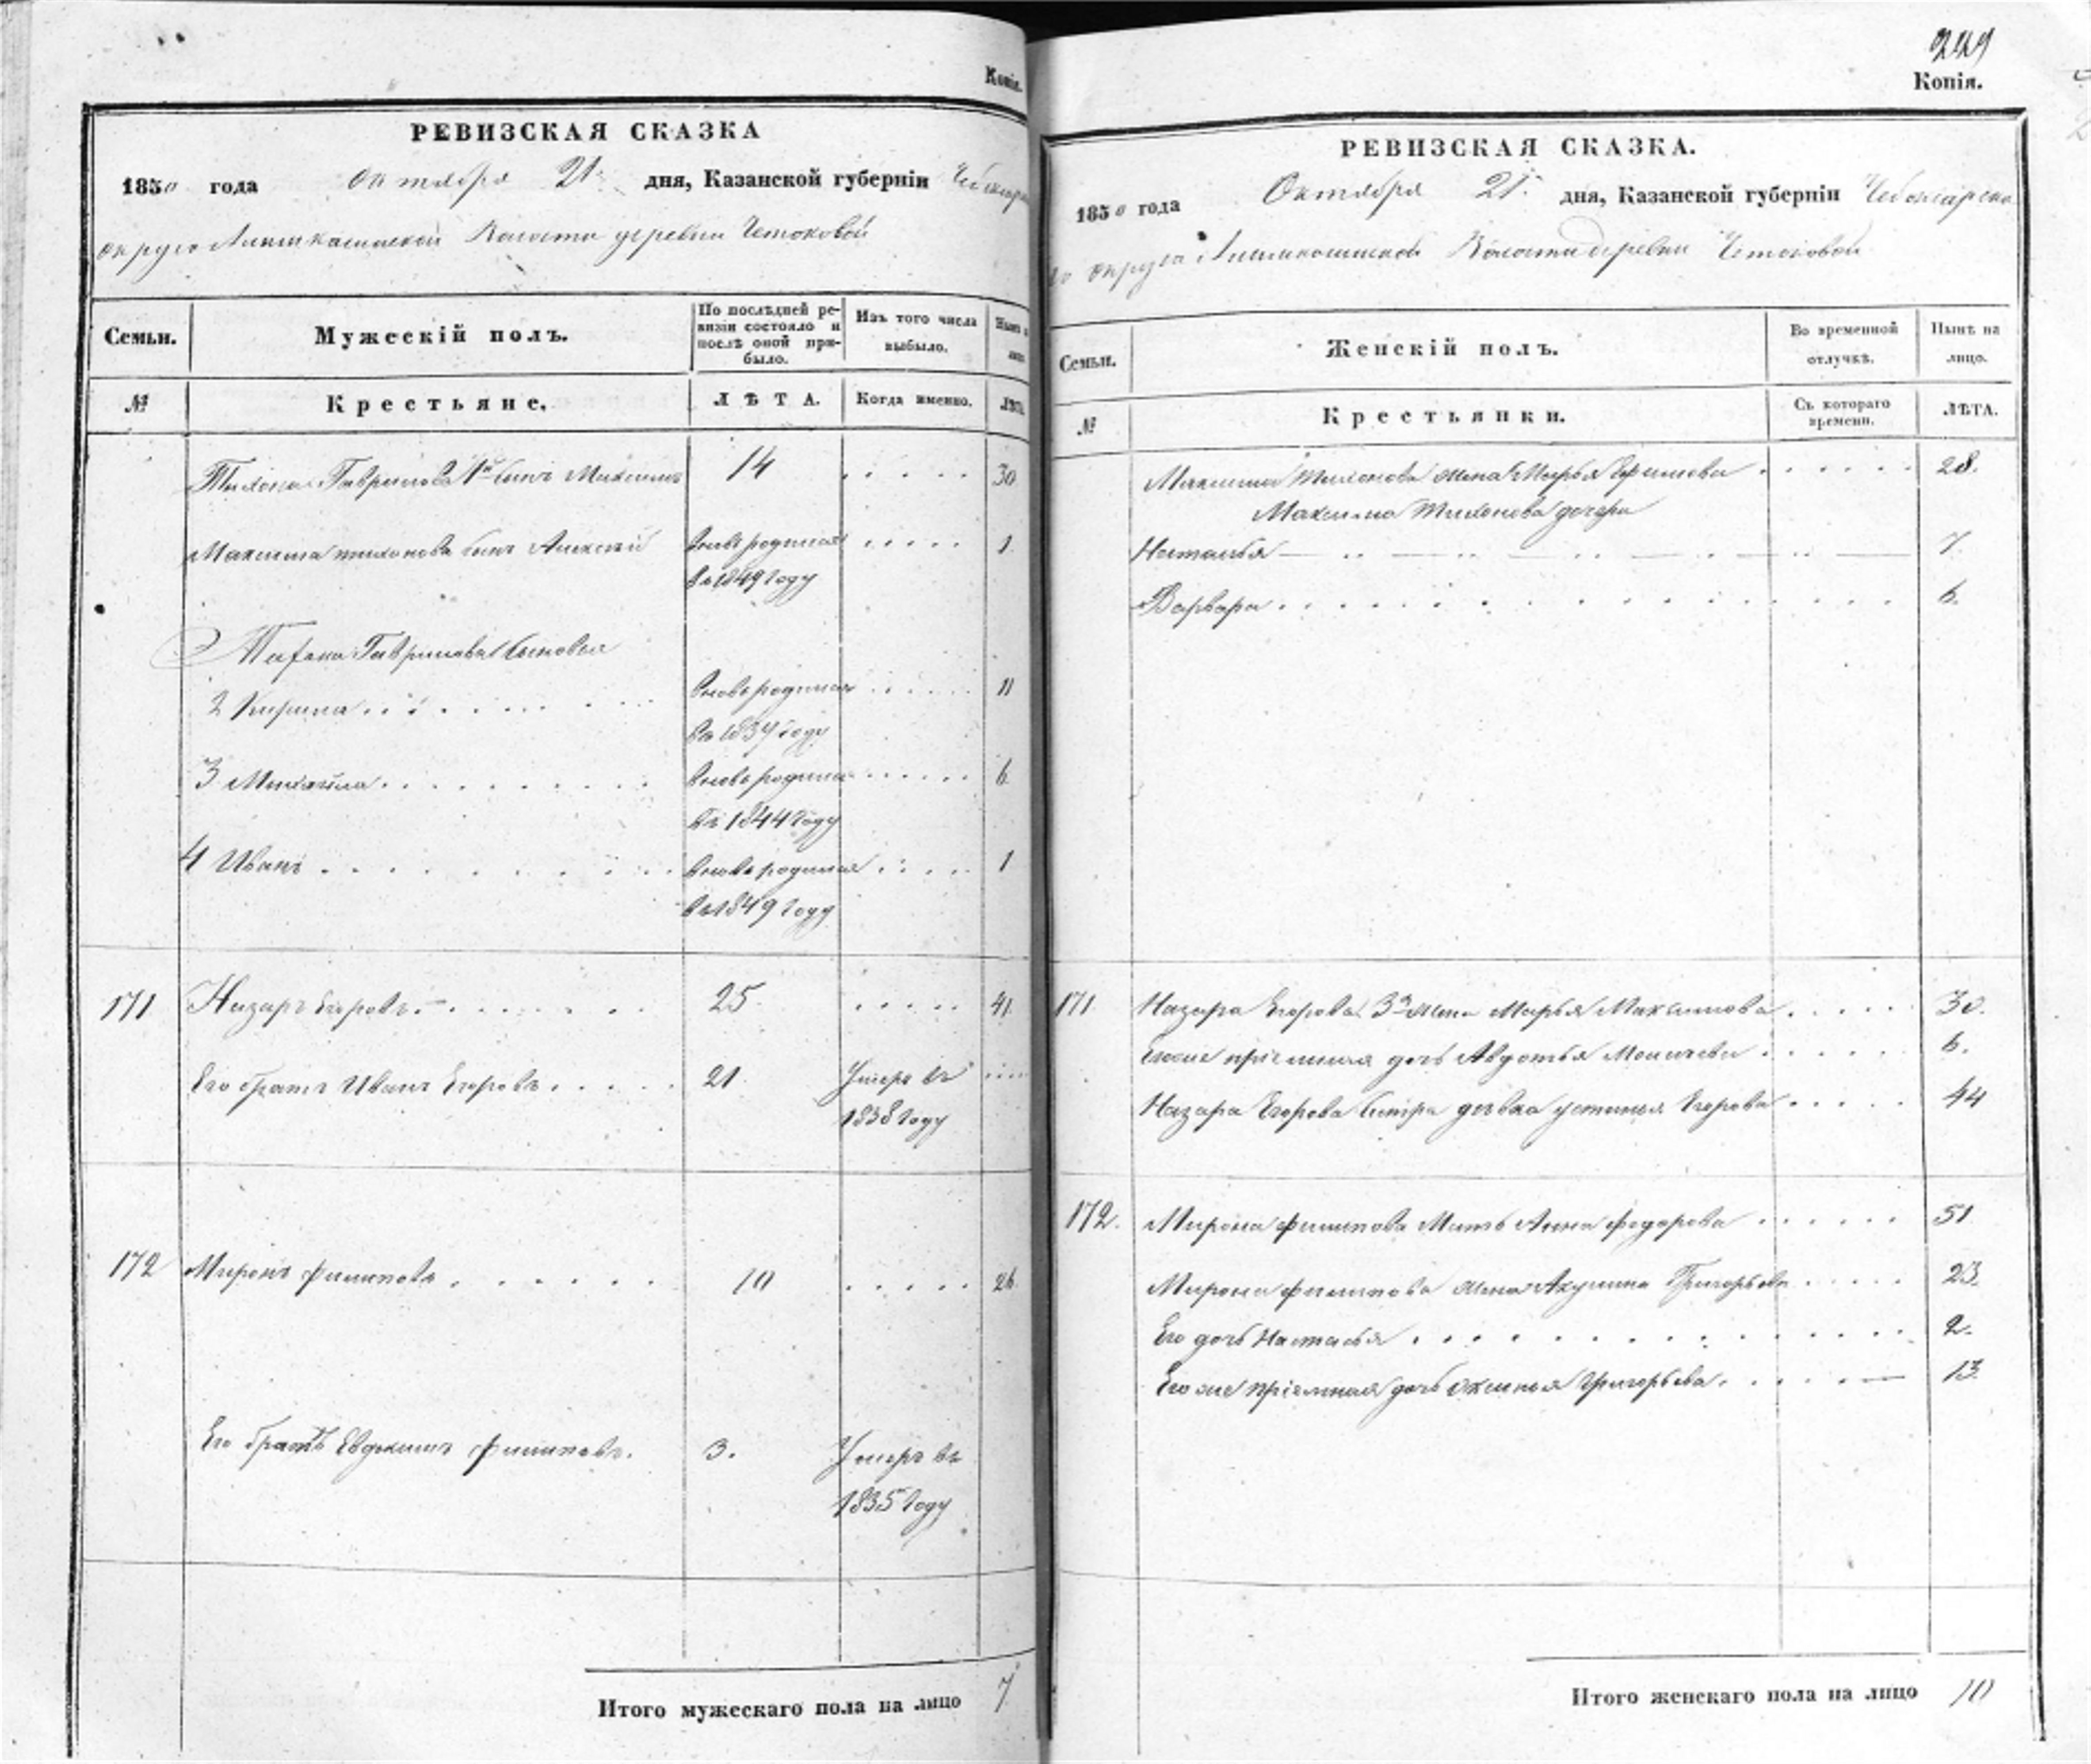 Копія.
РЕВИЗСКАЯ СКАЗКА
1850 года Октября 21 дня, Казанской губерніи Чебоксар
округа волости деревни Четоковой
Семьи. Мужескій полъ. По послѣдней ревизіи состояло и послѣ оной прибыло. Изъ того числа выбыло.
№ Крестьяне. ЛѢТА. Когда именно. ЛѢТА
Тихона Гаврилова 1й сынъ Максимъ 14 30
Максима Тихонова сынъ Алексей вновь родился 1
въ 1849 году
Тихона Гаврилова сыновья
2 Кирила вновь родился 11
въ 1839 году
3 Михайла вновь родился 6
въ 1844 году
4 Иванъ вновь родился 1
въ 1849 году
171 Назаръ Егоровъ 25 41
Его братъ Иванъ Егоровъ 21 Умеръ въ
1838 году
172 Миронъ Филиповъ 10 26
Его братъ Евдокимъ Филиповъ. 3. Умеръ въ
1835 году
Итого мужескаго пола на лицо 7
249
Копія.
РЕВИЗСКАЯ СКАЗКА.
1850 года Октября 21 дня, Казанской губерніи Чебоксарска
го округа Волости деревни Четоковой
Семьи. Женскій полъ. Во временной отлучкѣ. Нынѣ на лицо.
№ Крестьянки. Съ котораго времени. ЛѢТА.
Максима Тихонова жена Марья 28.
Максима Тихонова дочери
Наталья 7.
Варвара 6.
171. Назара Егорова 3я жена Марья Максимова 30.
Егоже пріемная дочь Авдотья 6.
Назара Егорова сестра девка Устинья Егорова 44
172. Мирона Филипова Мать Анна Федорова 51
Мирона Филипова жена Акулина Григорьева 23.
Его дочь Настасья 2.
Его же пріемная дочь Оксинья Григорьева. 13
Итого женскаго пола на лицо 10